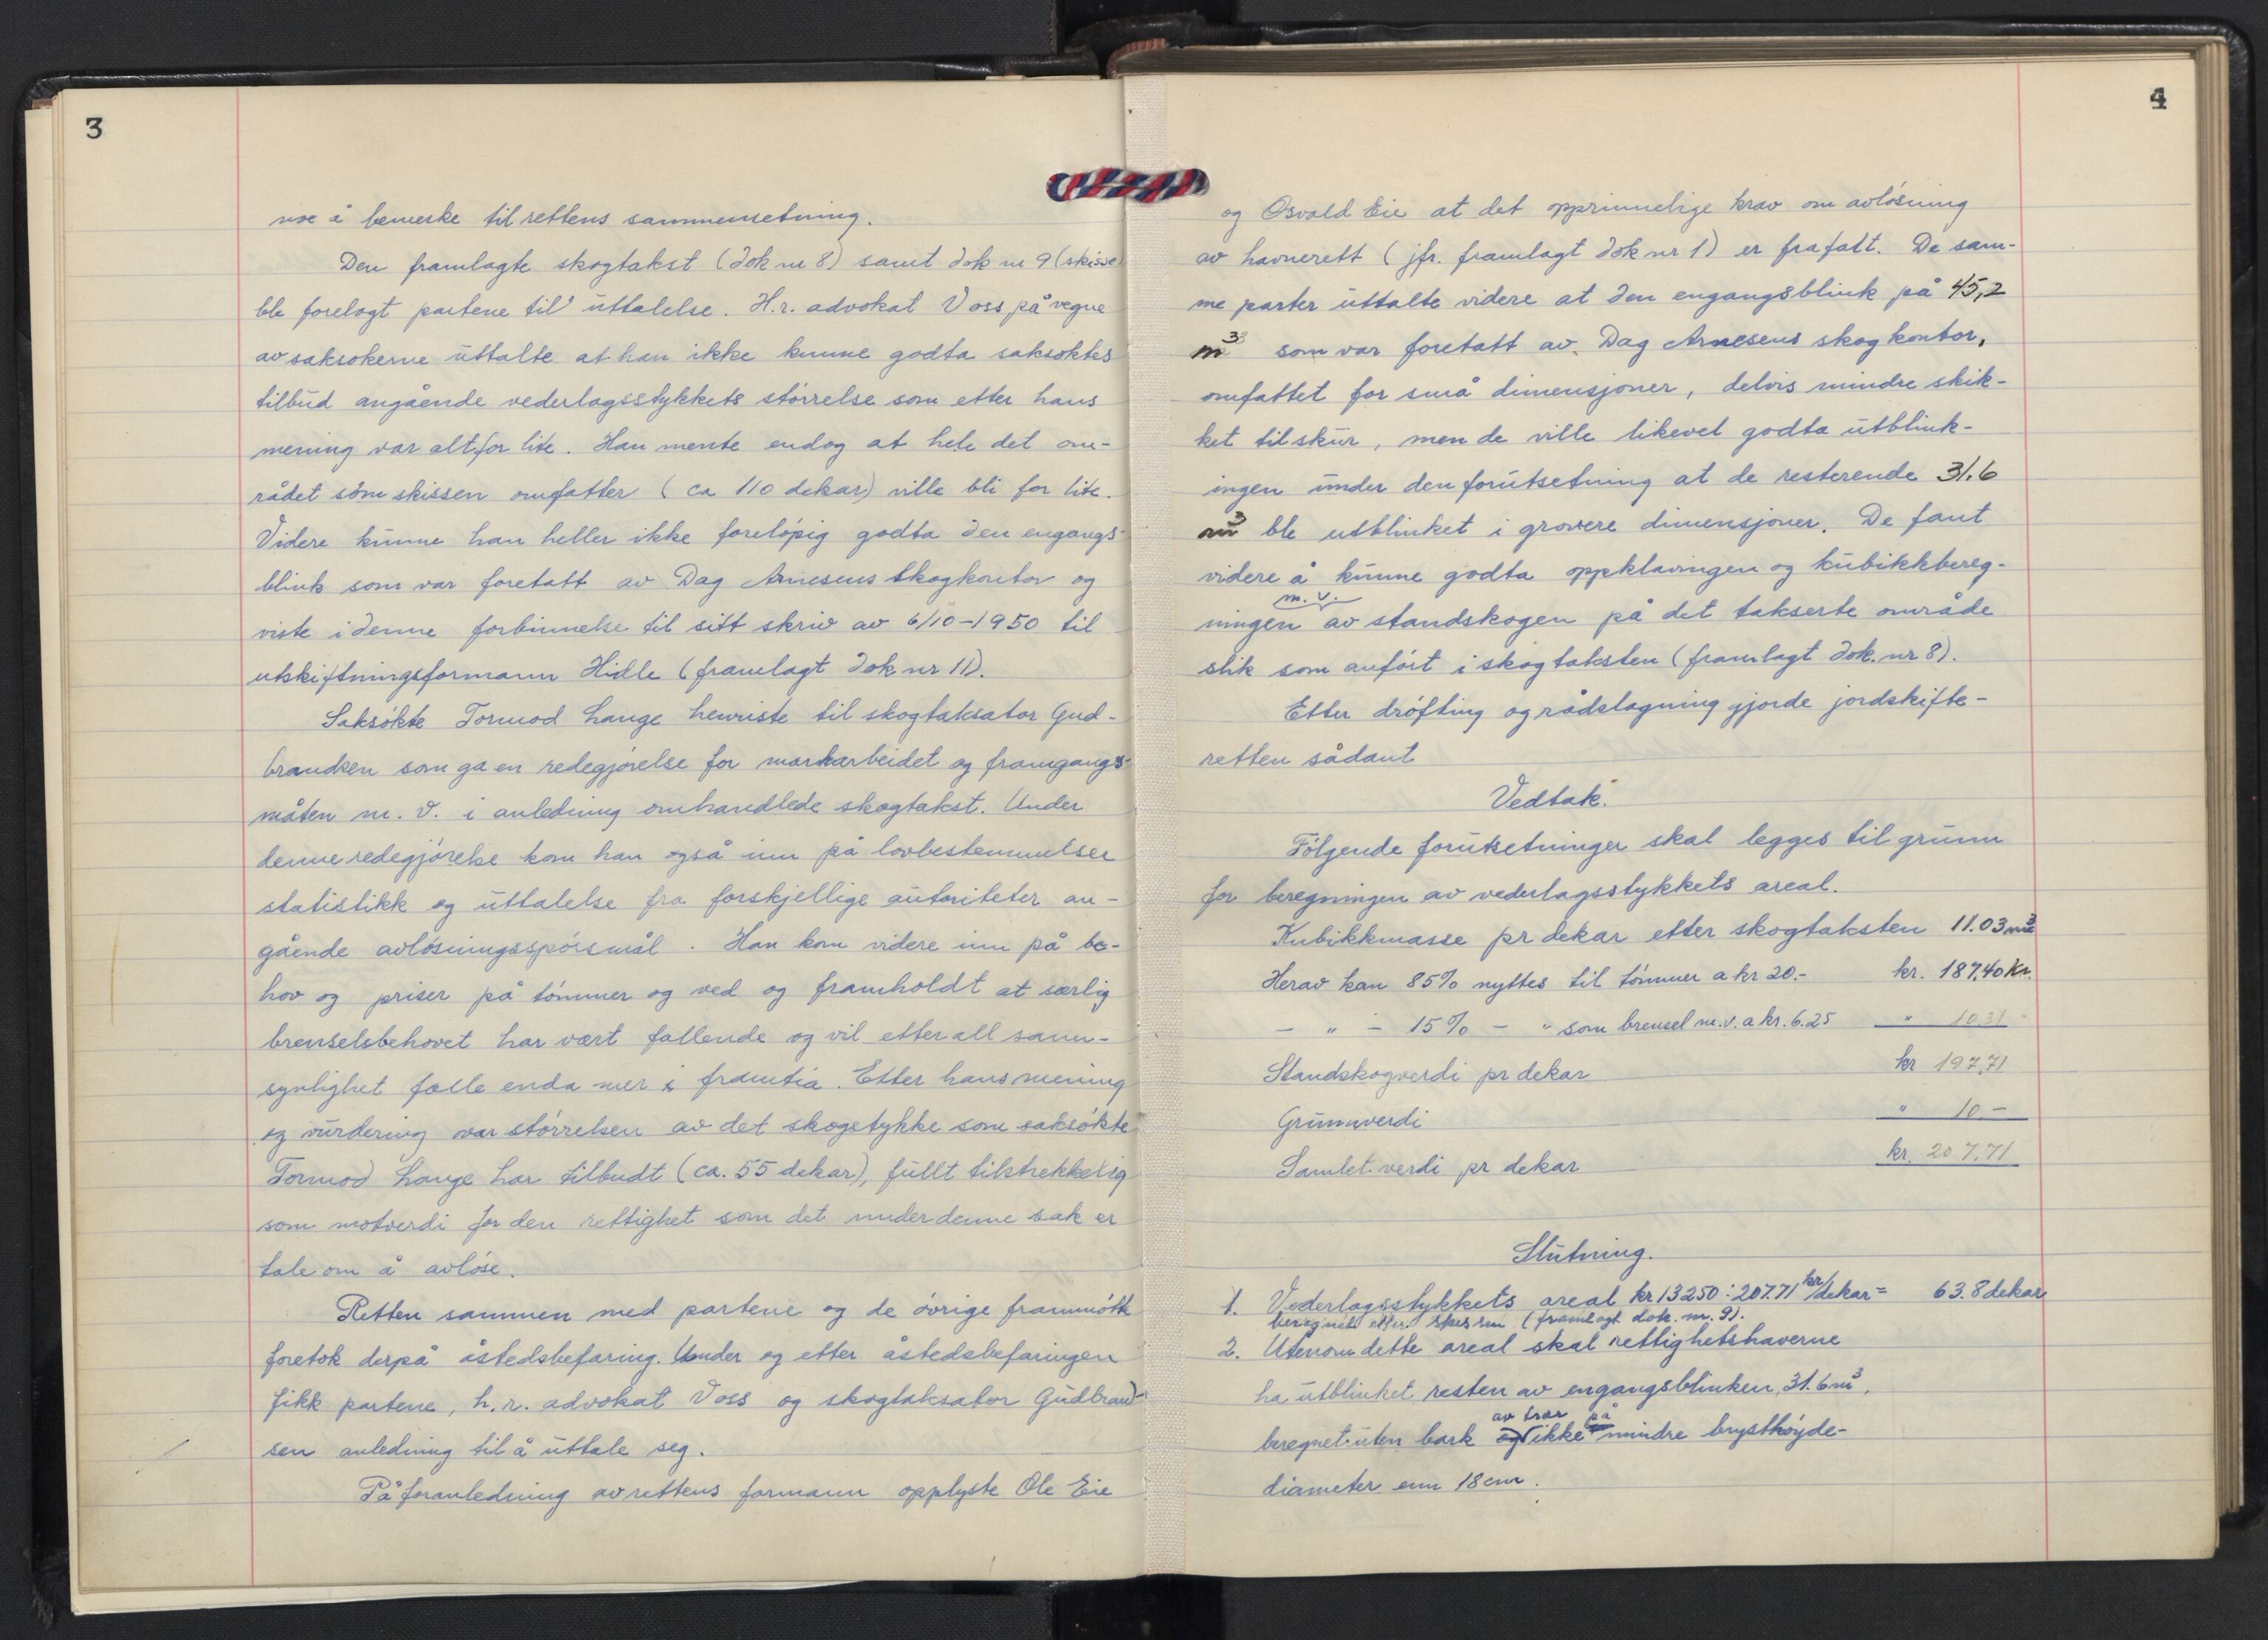 3
noe å bemerke til rettens sammensetning.
Den framlagte skogtakst (dok nr 8) samt dok nr 9 (skisse)
ble forelagt partene til uttalelse. H.r. advokat Voss på vegne
av saksøkerne uttalte at han ikke kunne godta saksøktes
tilbud angående vederlagsstykkets størrelse som etter hans
mening var altfor lite. Han mente endog at hele det om-
rådet som skissen omfatter (ca 110 dekar) ville bli for lite.
Videre kunne han heller ikke foreløpig godta den engangs-
blink som var foretatt av Dag Arnesens skogkontor og
viste i denne forbinnelse til sitt skriv av 6/10-1950 til
utskiftningsformann Hidle (framlagt dok nr 11).
Saksøkte Tormod Lange henviste til skogtaksator Gud-
brandsen som ga en redegjørelse for markarbeidet og framgangs-
måten m.v. i anledning omhandlede skogtakst. Under
denne redegjørelse kom han også inn på lovbestemmelser
statistikk og uttalelse fra forskjellige autoriteter an-
gående avløsningsspørsmål. Han kom videre inn på be-
hov og priser på tømmer og ved og framholdt at særlig
brenselsbehovet har vært fallende og vil etter all sann-
synlighet falle enda mer i framtia. Etter hans mening
og vurdering var størrelsen av det skogstykke som saksøkte
Tormod Lange har tilbudt (ca. 55 dekar), fullt tilstrekkelig
som motverdi for den rettighet som det under denne sak er
tale om å avløse.
Retten sammen med partene og de øvrige frammøtte
foretok derpå åstedsbefaring. Under og etter åstedsbefaringen
fikk partene, h.r. advokat Voss og skogtaksator Gudbrand-
sen anledning til å uttale seg.
På foranledning av rettens formann opplyste Ole Eie
4
og Osvald Eie at det opprinnelige krav om avløsning
av havnerett (jfr. framlagt dok nr 1) er frafalt. De sam-
me parter uttalte videre at den engangsblink på 45,2
m³ som var foretatt av Dag Arnesens skogkontor,
omfattet for små dimensjoner, delvis mindre skik-
ket til skur, men de ville likevel godta utblink-
ingen under den forutsetning at de resterende 31.6
m³ ble utblinket i grovere dimensjoner. De fant
videre å kunne godta oppklavingen og kubikkbereg-
m.v.
ningen av standskogen på det takserte område
slik som anført i skogtaksten (framlagt dok. nr 8).
Etter drøfting og rådslagning gjorde jordskifte-
retten sådant
Vedtak.
Følgende forutsetninger skal legges til grunn
for beregningen av vederlagsstykkets areal.
Kubikkmasse pr dekar etter skogtaksten 11.03 m³
Herav kan 85% nyttes til tømmer a kr 20.- kr. 187,40 kr.
- " - 15% - " som brensel m.v. a kr. 6.25 " 10.31
Standskogverdi pr dekar kr 197,71
Grunnverdi " 10,-
Samlet verdi pr dekar kr. 207,71
Slutning.
1. Vederlagsstykkets areal kr 13250 : 207.71 kr/dekar = 63.8 dekar
beregnet etter skissen (framlagt dok. nr. 9).
2. Utenom dette areal skal rettighetshaverne
ha utblinket resten av engangsblinken, 31.6 m³,
av trær på
beregnet uten bark og ikke mindre brysthøyde-
diameter enn 18 cm.